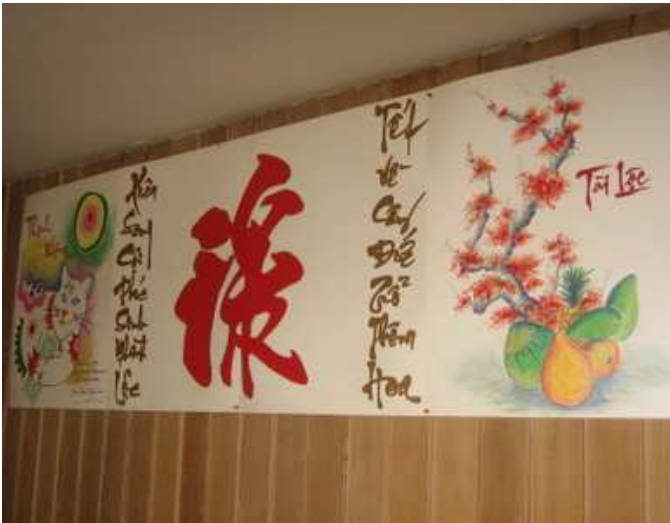 Thịnh
Vượng
Xuân
Sang
Cội
Phúc
Sinh
Nhánh
Lộc
Tết
Về
Cây
Đức
Trổ
Thêm
Hoa
Tài Lộc